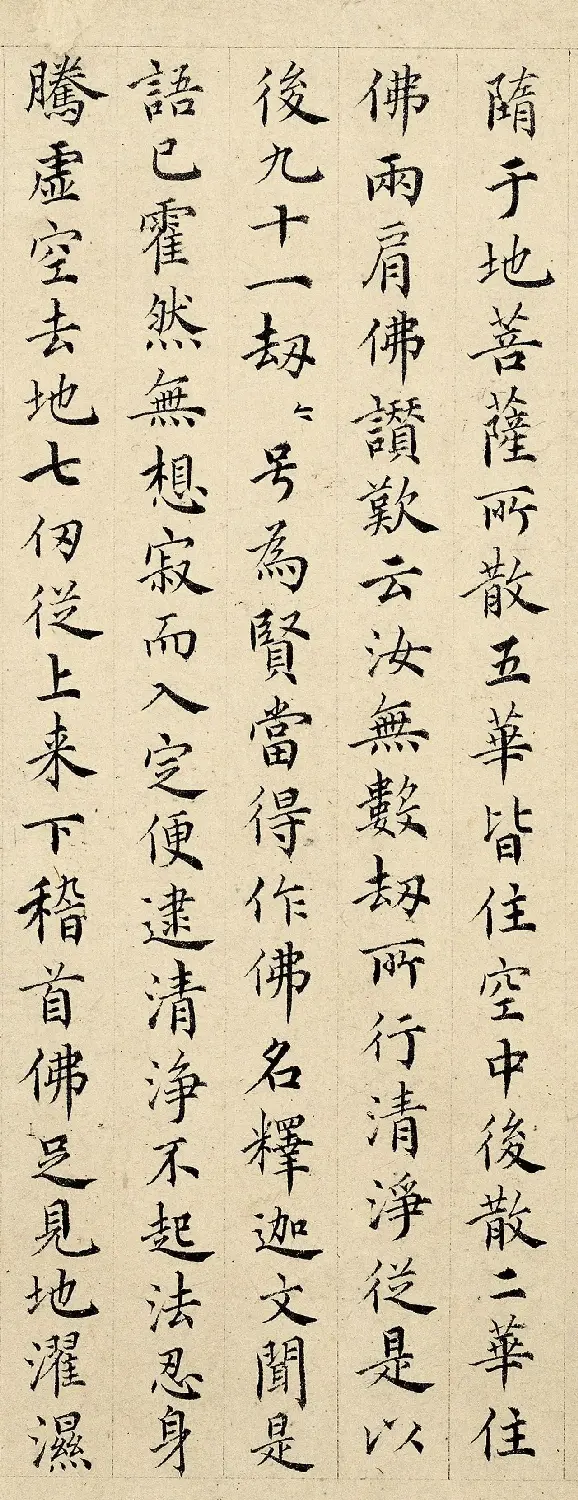 隋于地菩薩所散五華皆住空中後散二華住
佛兩肩佛讃歎云汝無數劫所行清淨從是以
後九十一劫〻号為賢當得作佛名釋迦文聞是
語已霍然無想寂而入定便逮清淨不起法忍身
騰虛空去地七仞從上来下稽首佛足見地濯濕